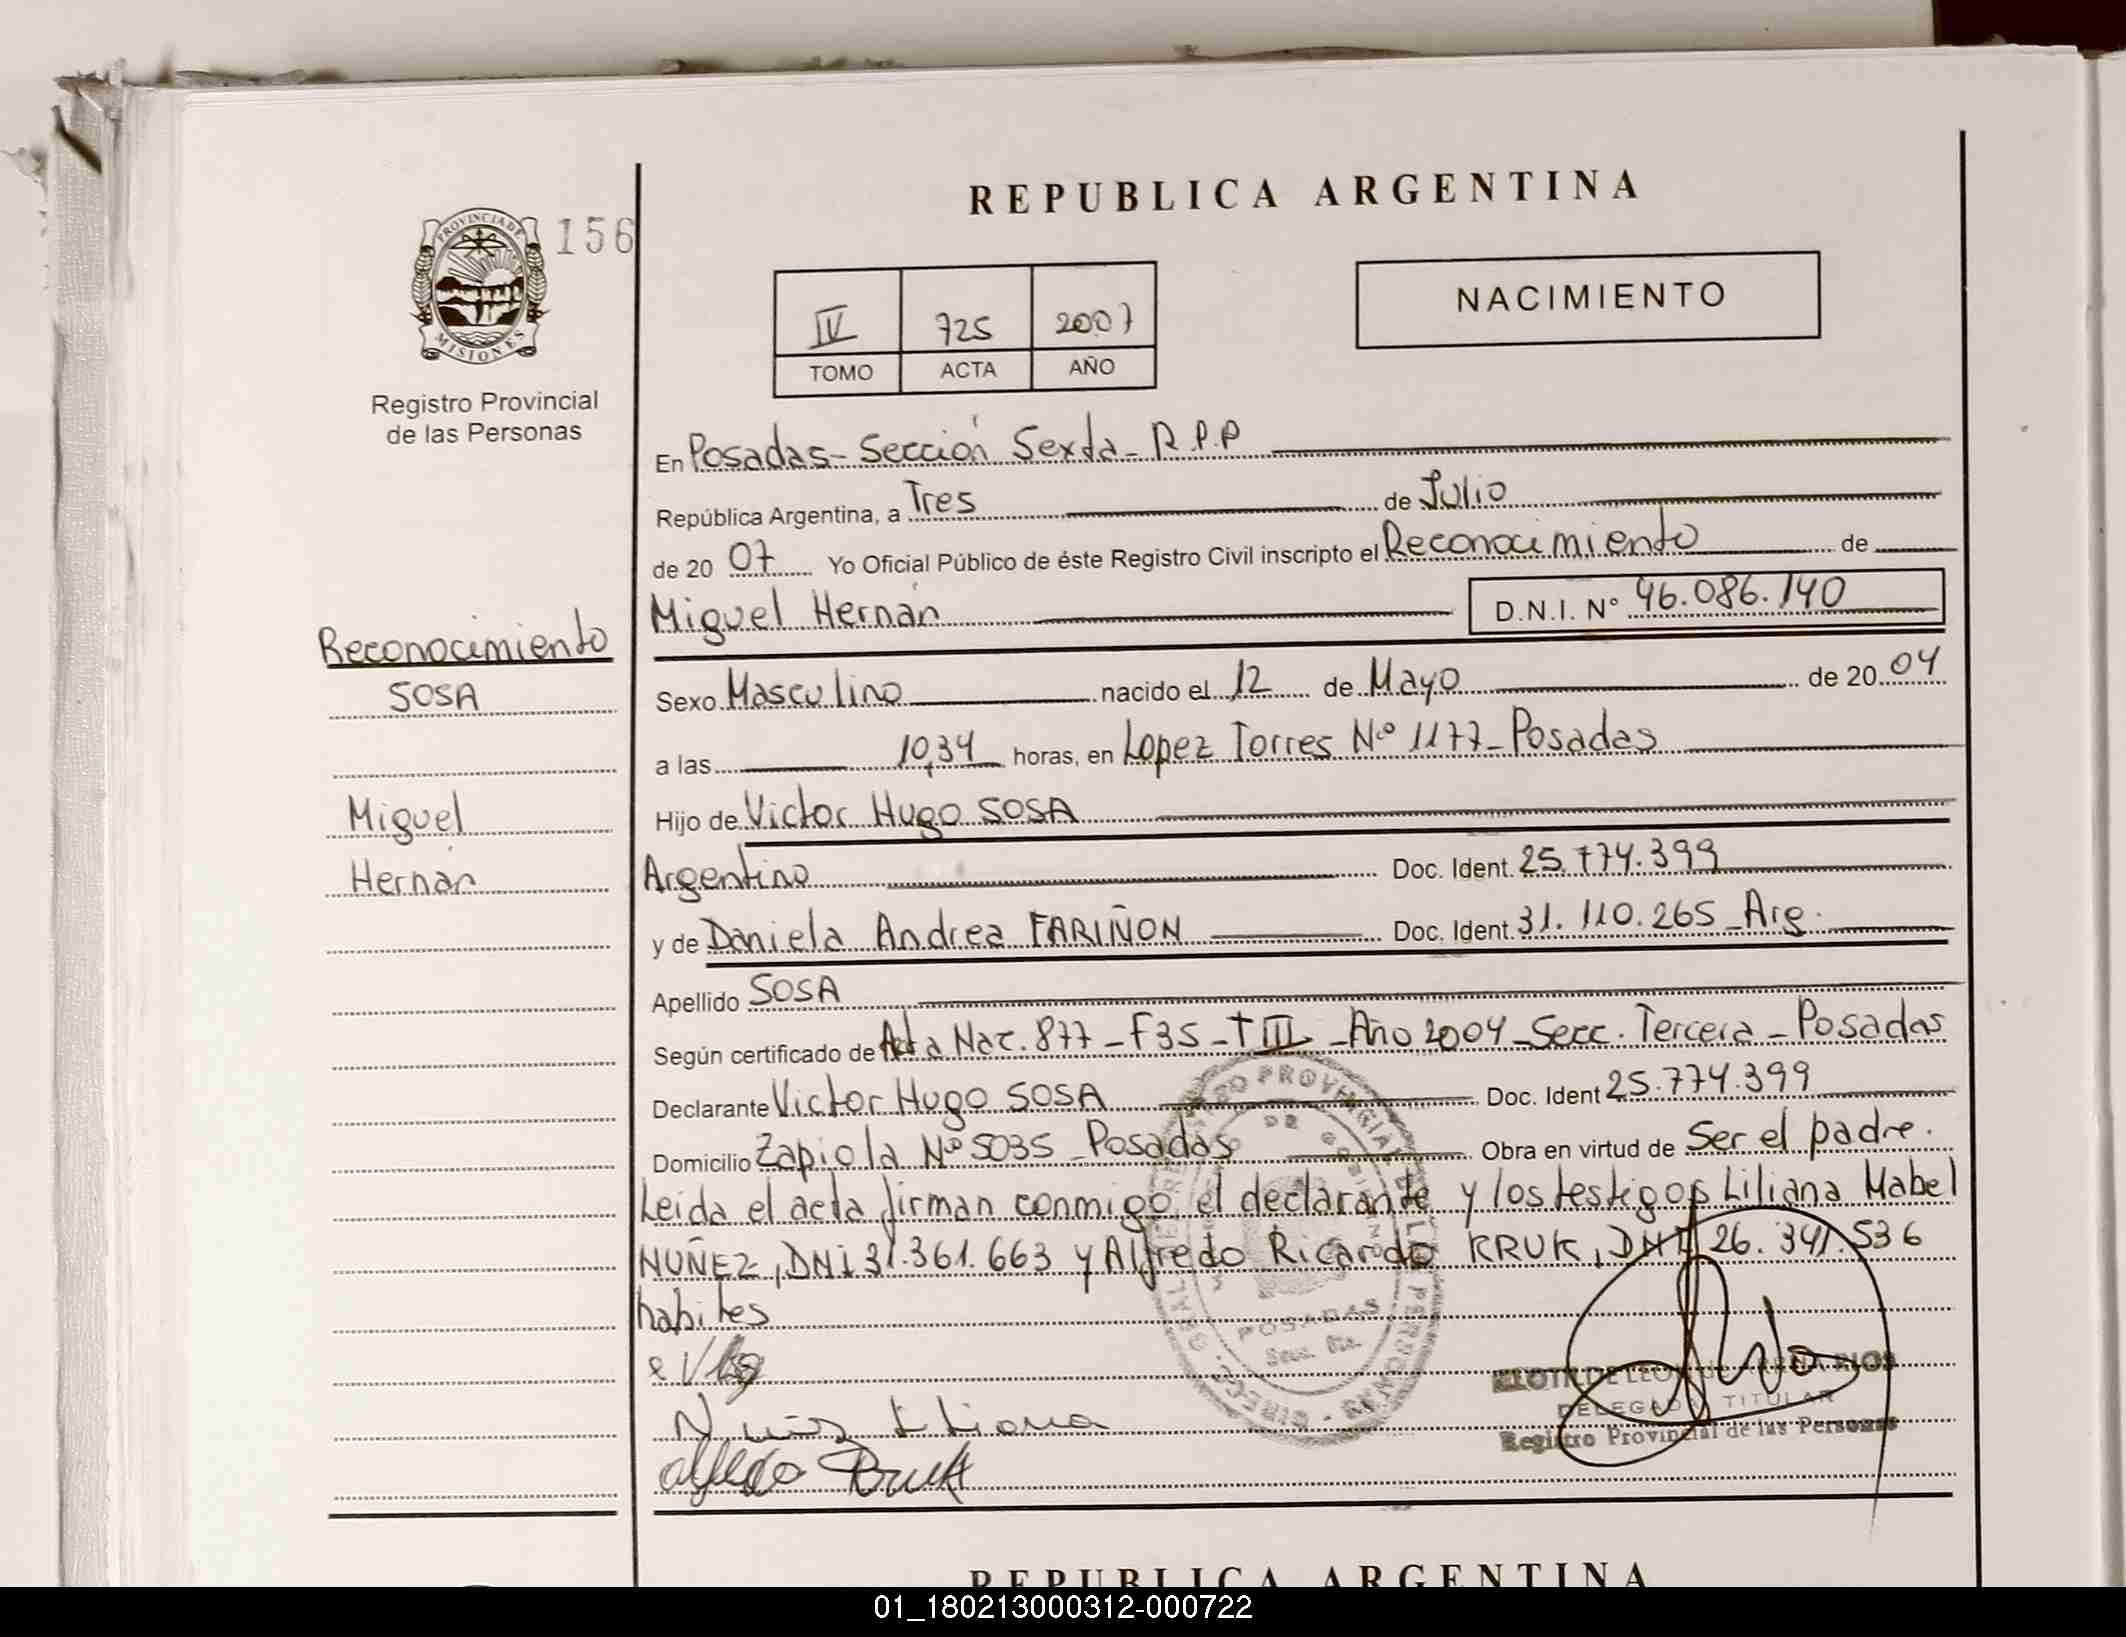 REPUBLICA ARGENTINA
PROVINCIA DE
MISIONES
156
Registro Provincial
de las Personas
IV 725 2007
TOMO ACTA AÑO
NACIMIENTO
En Posadas-Sección Sexta-R.P.P
República Argentina, a Tres de Julio
de 20 07 Yo Oficial Público de éste Registro Civil inscripto el Reconocimiento de
Miguel Hernán D.N.I. N° 46.086.140
Reconocimiento
SOSA
Miguel
Hernán
Sexo Masculino nacido el 12 de Mayo de 20 04
a las 10,34 horas, en Lopez Torres Nº 1177-Posadas
Hijo de Victor Hugo SOSA
Argentino Doc. Ident. 25.774.399
y de Daniela Andrea FARIÑON Doc. Ident. 31.110.265-Arg.
Apellido SOSA
Según certificado de Acta Nac. 877-F35-TIII-Año 2004-Secc. Tercera-Posadas
Declarante Victor Hugo SOSA Doc. Ident 25.774.399
Domicilio Zapiola Nº 5035-Posadas Obra en virtud de Ser el padre.
Leida el acta firman conmigo, el declarante y los testigos Liliana Mabel
NUÑEZ, DNI 31.361.663 y Alfredo Ricardo KRUK, DNI 26.341.536
habiles
POSADAS
DELEGADA TITULAR
Registro Provincial de las Personas
Alfredo Kruk
REPUBLICA ARGENTINA
01_180213000312-000722